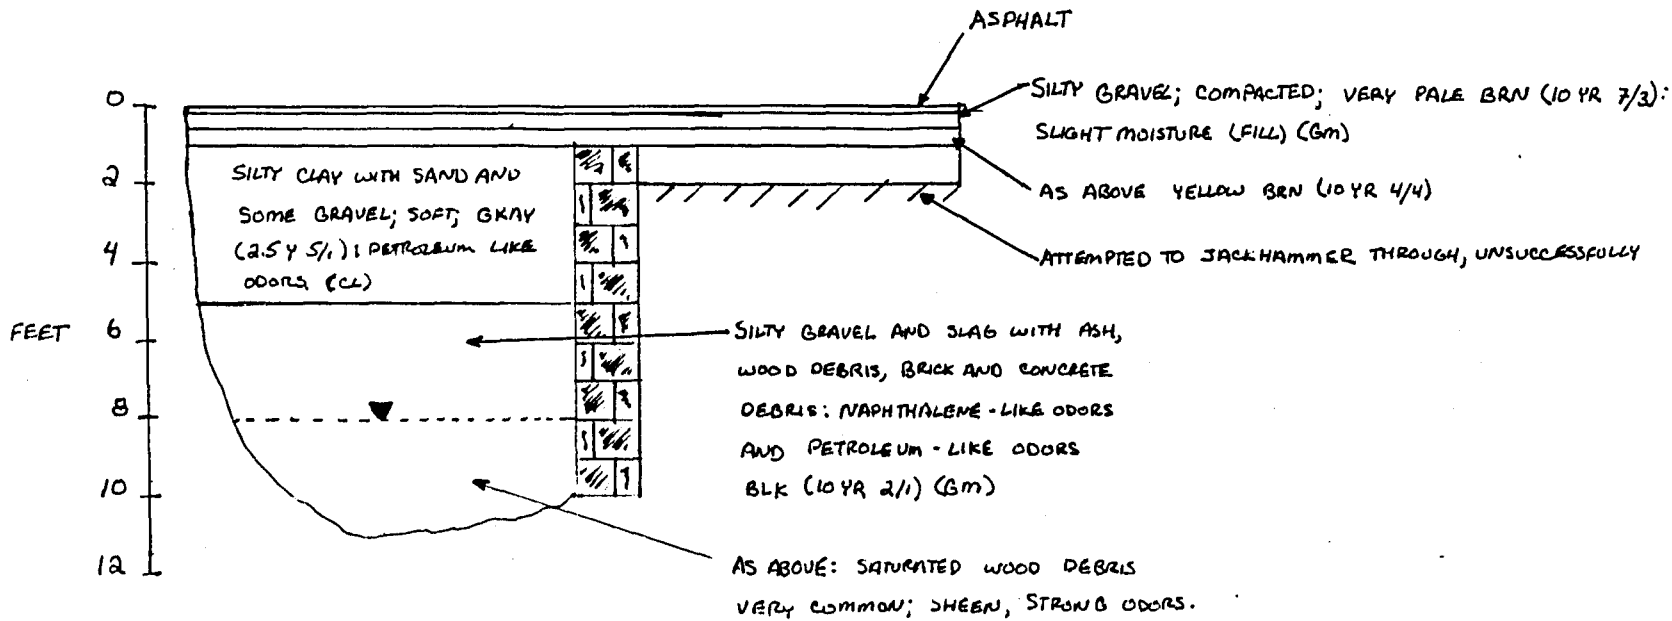 ASPHALT
SILTY GRAVEL; COMPACTED; VERY PALE BRN (10 YR 7/3):
SLIGHT MOISTURE (FILL) (GM)
AS ABOVE YELLOW BRN (10 YR 4/4)
ATTEMPTED TO JACKHAMMER THROUGH, UNSUCCESSFULLY
0
2
4
FEET 6
8
10
12
SILTY CLAY WITH SAND AND
SOME GRAVEL; SOFT; GRAY
(2.5 Y 5/1); PETROLEUM LIKE
ODORS (CL)
SILTY GRAVEL AND SLAG WITH ASH,
WOOD DEBRIS, BRICK AND CONCRETE
DEBRIS: NAPHTHALENE-LIKE ODORS
AND PETROLEUM-LIKE ODORS
BLK (10 YR 2/1) (GM)
AS ABOVE: SATURATED WOOD DEBRIS
VERY COMMON; SHEEN, STRONG ODORS.